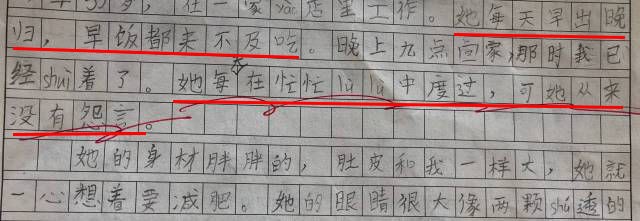 岁，在一家 店里工作。她每天早出晚
归，早饭都来不及吃。晚上九点回家，那时我已
经shuì着了。她每天在忙忙lù lù中度过，可她从来
没有怨言。
她的身材胖胖的，肚皮和我一样大，她就
一心想着要减肥。她的眼睛很大像两颗shú透的